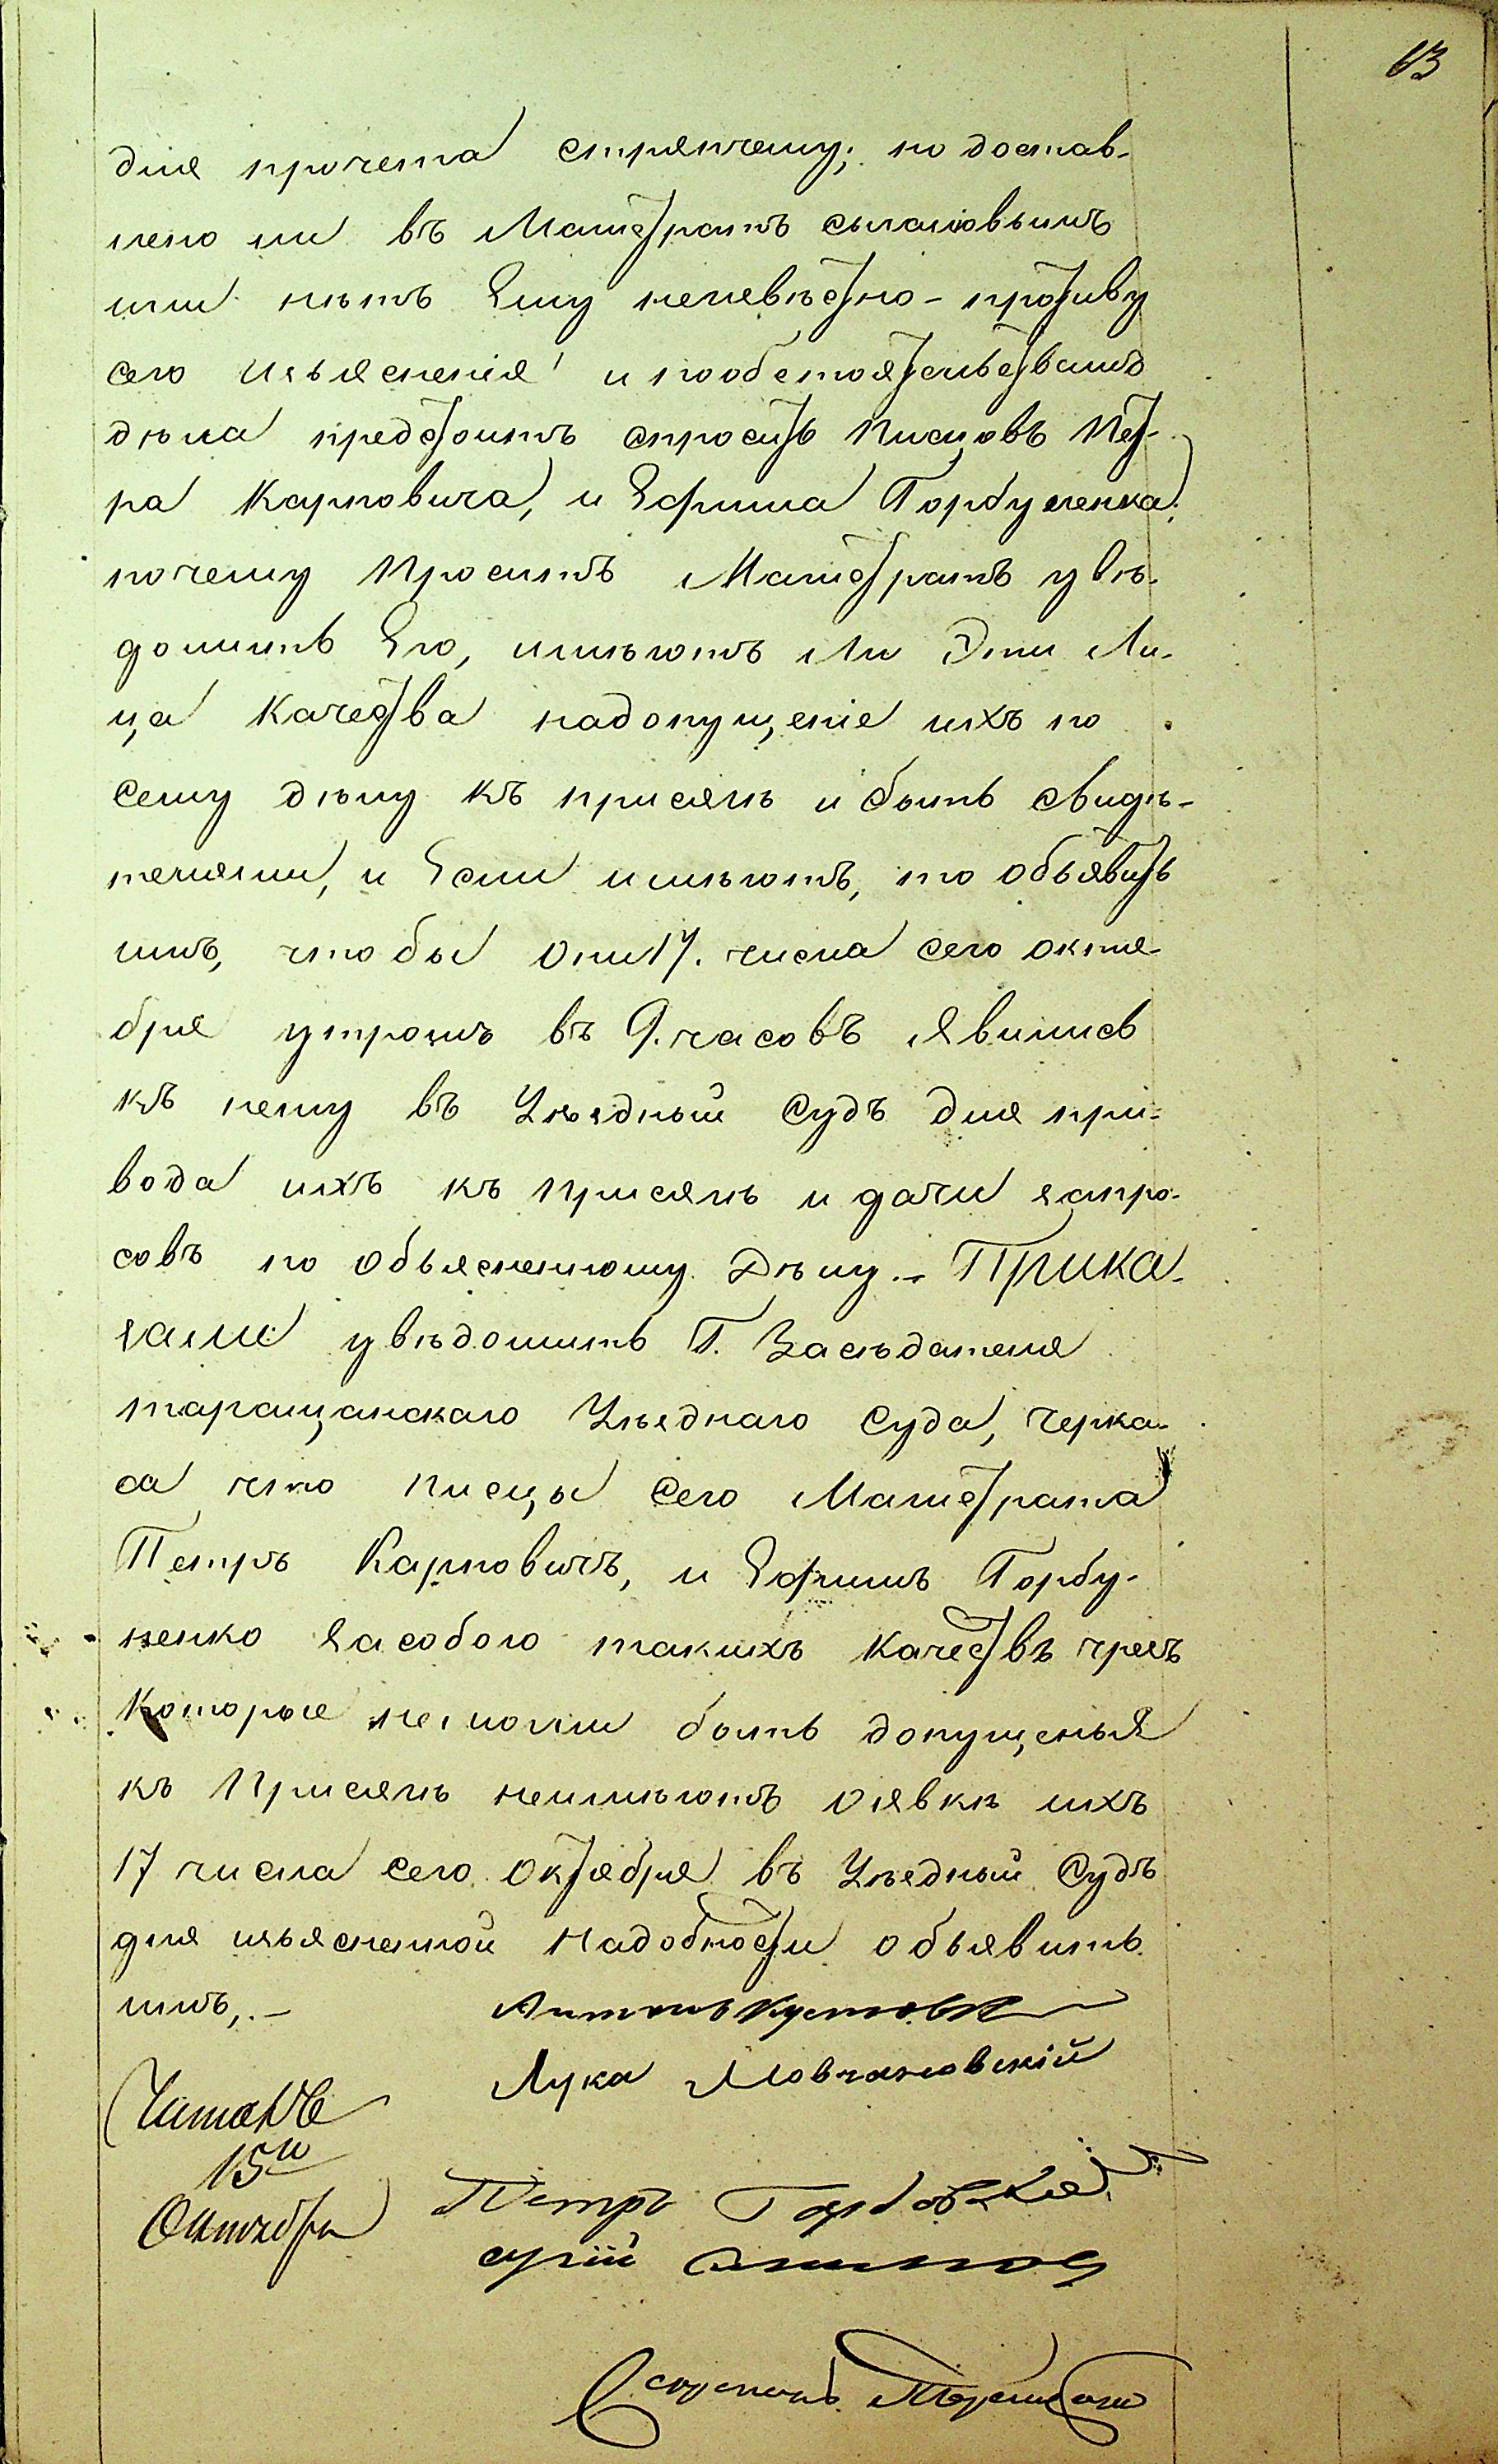 63
для прочета стряпчему; но достав-
лено ли въ Магистратъ сылаювымъ
или нѣтъ Ему неизвѣстно - противу
сего изъясненія и пообстоятельствамъ
дѣла предстоитъ спросить писцовъ Пет-
ра Карповича, и Ефима Горбуленка;
почему Проситъ Магистратъ увѣ-
домить Его, имѣютъ ли Эти Ли-
ца Качества надопущеніе ихъ по
сему дѣлу къ присягѣ и быть свидѣ-
телями, и Если имѣютъ, то объявить
имъ, чтобы Они 17. числа сего октя-
бря утромъ въ 9. часовъ Явились
къ нему въ Уѣздный Судъ для при-
вода ихъ къ Присягѣ и дачи запро-
совъ по объясненному Дѣлу. - Прика-
зали увѣдомить Г. Засѣдателя
таращанскаго Уѣзднаго Суда, Черка-
са что писцы сего Магистрата
Петръ Карповичъ, и Ефимъ Горбу-
ленко Засобою такихъ качествъ чрезъ
Которые немогли быть допущеныя
къ Присягѣ неимѣютъ оявкѣ ихъ
17 числа сего Октября въ Уѣздный Судъ
для изъясненной надобности объявить
имъ, . -
Антонъ
Лука Мовчановскій
Читалъ
15го
Октября
Петръ